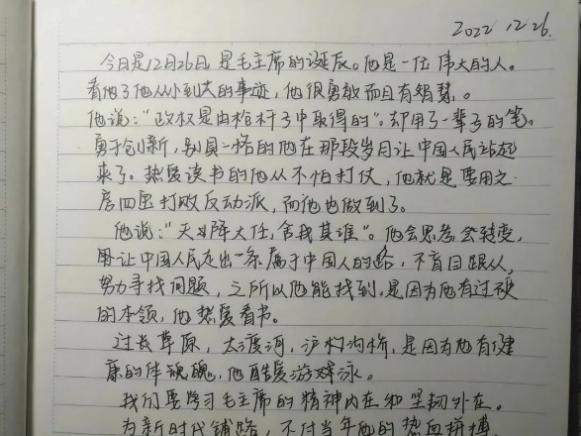 2022 12 26.
今日是12月26日,是毛主席的诞辰。他是一位伟大的人。
看他了他从小到大的事迹,他很勇敢而且有智慧。
他说:“政权是由枪杆子中取得的”。却用了一辈子的笔。
勇于创新,别具一格的他在那段岁月让中国人民站起
来了。热爱读书的他从不怕打仗,他就是要用文
房四宝打败反动派,而他也做到了。
他说:“天降大任,舍我其谁”。他会思考会转变,
让中国人民走出一条属于中国人的路,不盲目跟从,
努力寻找问题,之所以他能找到,是因为他有过硬
的本领,他热爱看书。
过长草原,大渡河,泸桥,是因为他有健
康的体魄,他酷爱游泳。
我们要学习毛主席的精神内在和坚韧外在。
为新时代铺路,不付当年他的热血拼搏